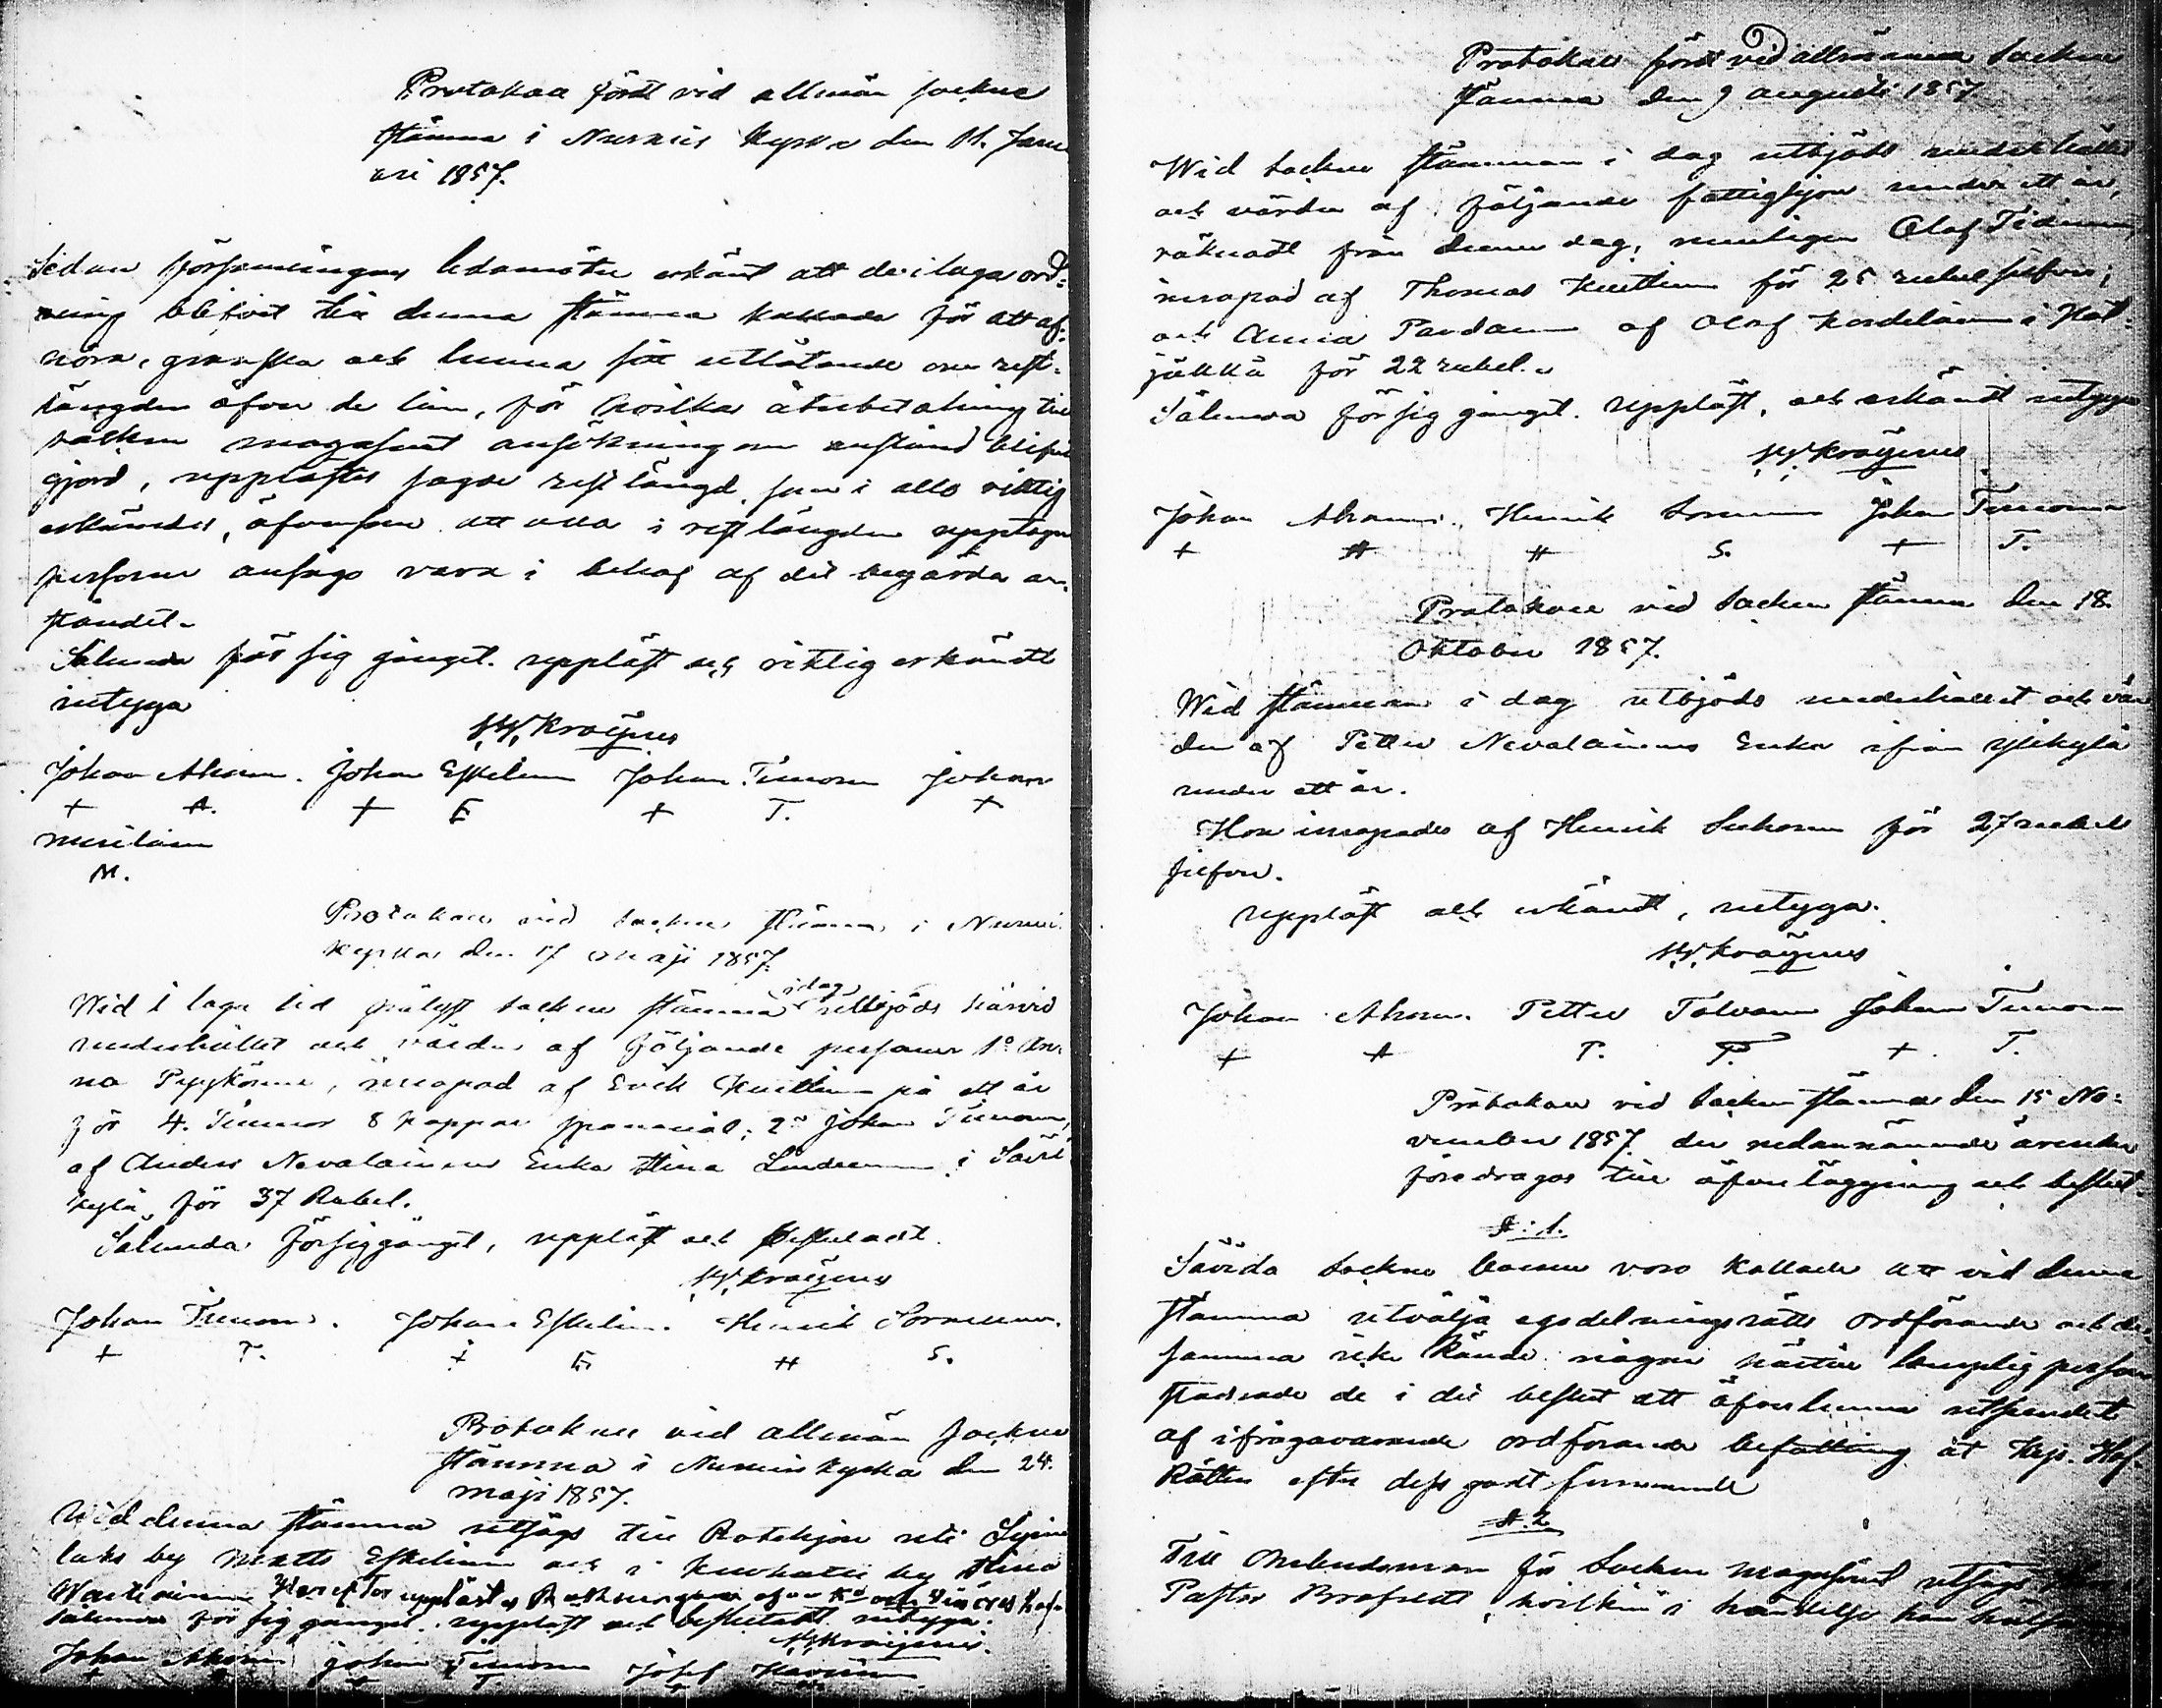 Protokoll fördt vid allmän sockne
stämma i Nurmis kyrka den 11. Janu
ari 1857.
Sedan församlingens ledamöter erkänt att de i laga ord-
ning blifvit till denna stämma kallade för att af-
höra, granska och lemna sitt utlåtande om rest-
längden öfver de lån, för hvilkas återbetalning till
socken magasinet ansökning om anstånd blifvit
gjord, upplästes sagde restlängd, som i allo riktig
erkändes, äfvensom att alla i restlängden upptagne
personer ansågs vara i behof af det begärda an-
ståndet.
Sålunda för sig gånget. uppläst och riktig erkändt
intyga
Krogerus
Johan Ahonen. Johan Eskelinen Johan Timonen Johan
+ A. + E + T. +
M.
Protokoll vid sockne stämma i Nurmis
kyrka den 17 Maji 1857.
Wid i laga tid pålyst sockne stämma idag utbjöds härvid
underhållet och vården af följande personer 1o An-
na Pyykönen, inropad af Erik på ett år
för 4. Tunnor 8 kappar spannmål; 2o Johan Timonen,
af Anders Nevalainens Enka Stina i
kylä för 37 Rubel.
Sålunda försiggånget, uppläst och beslutadt.
Krogerus
Johan Timonen. Johan Eskelinen. Henrik Sormunen.
+ T. + E H S.
Protokoll vid allmän sockne
stämma i Nurmis kyrka den 24.
maji 1857.
Wid denna stämma utsågs till Rotehjon uti
laks by Matts Eskelinen och i by Stina
Härefter upplästes Räkningarna öfver
sålunda för sig gånget. uppläst och beslutadt intyga.
Krogerus.
Johan Ahonen Johan Timonen Josef
Protokoll fördt vid allmänna sockne
stämma den 9 augusti 1857
Wid sockne stämman i dag utbjöds underhållet
och vården af följande fattighjon under ett år,
räknadt från denna dag, nemligen Olof
inropad af Thomas för 25 rubel silfver;
och Anna af Olof i Höl-
jäkkä för 22 rubel.
Sålunda för sig gånget. Uppläst, och erkändt intyga
Krogerus
Johan Ahonen. Henrik Sormunen Johan Timonen
+ A H S. + T.
Protokoll vid socken stämma den 18.
Oktober 1857.
Wid stämman i dag utbjöds underhållet och vår
den af Petter Nevalainens Enka ifrån Ylikylä
under ett år.
Hon inropades af Henrik för 27 rubel
silfver.
Uppläst och erkändt, intyga.
Krogerus
Johan Ahonen. Petter Tolvanen Johan Timonen
+ A P. T. + T.
Protokoll vid socken stämma den 15 No-
vember 1857. der nedannämnde ärenden
föredragos till öfverläggning och beslut.
§: 1.
Såvida sockne boerne voro kallade att vid denna
stämma utvälja egodelningsrätts ordförande och de-
samma icke kände någon härtill lämplig person
stadnade de i det beslut att öfverlemna utseendet
af ifrågavarande ordförande befattning åt Kejs. Hof-
Rätten efter dess godt finnande
§. 2
Till Ombudsman för Socken magasinet utsågs
Pastor Brofeldt, hvilken i händelse han